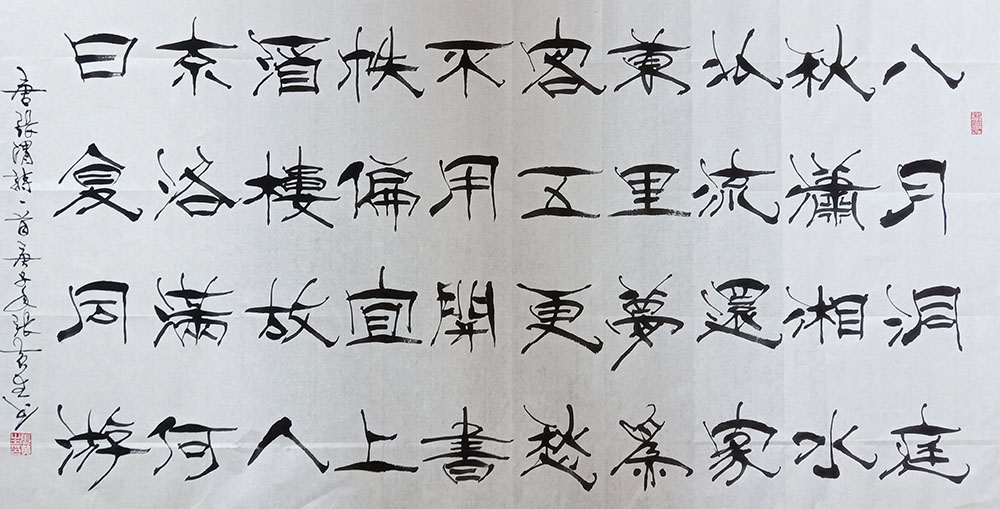 八月洞庭
秋瀟湘水
北流還家
萬里夢爲
客五更愁
不用開書
帙偏宜上
酒樓故人
京洛滿何
日复同游
唐張渭詩一首庚子夏張